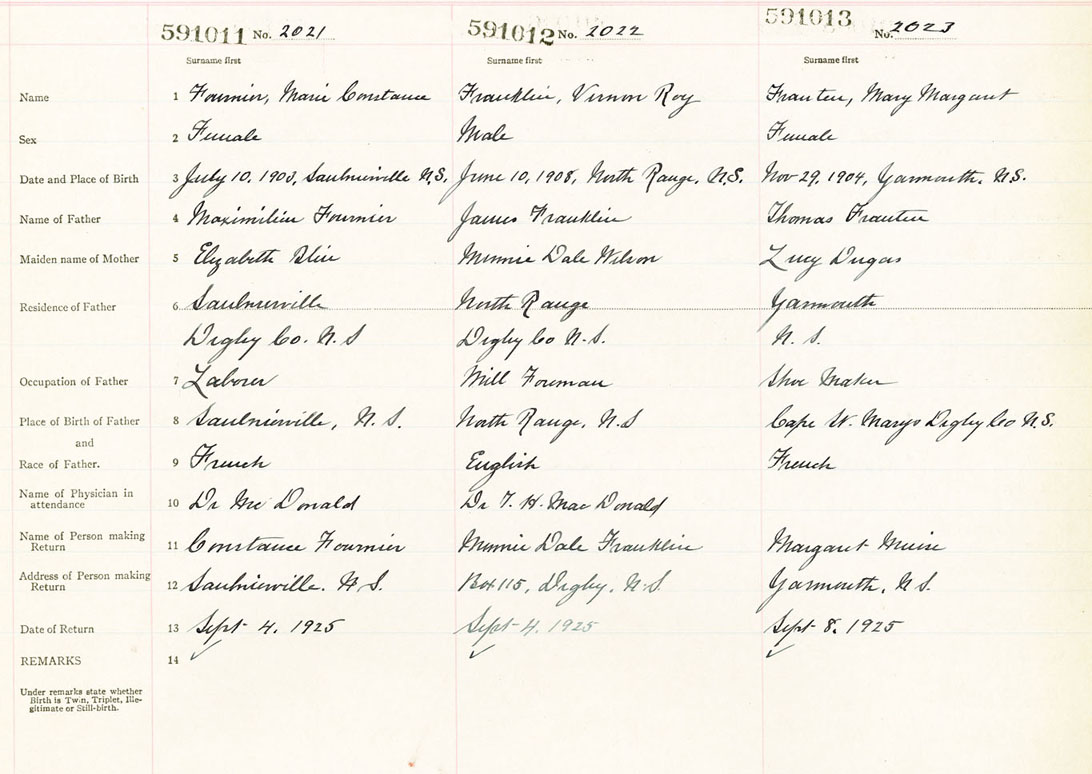 591011 No. 2021 591012 No. 2022 591013 No. 2023
Surname first Surname first Surname first
Name 1 Fournier, Marie Constance Franklin, Vernon Roy Frauten, Mary Margaret
Sex 2 Female Male Female
Date and Place of Birth 3 July 10, 1903, Saulnierville N.S. June 10, 1908, North Range, N.S. Nov 29, 1904, Yarmouth, N.S.
Name of Father 4 Maximilien Fournier James Franklin Thomas Frauten
Maiden name of Mother 5 Elizabeth Blin Minnie Dale Wilson Lucy Dugas
Residence of Father 6 Saulnierville North Range Yarmouth
Digby Co. N.S Digby Co N.S. N. S.
Occupation of Father 7 Laborer Mill Foreman Shoe Maker
Place of Birth of Father 8 Saulnierville, N.S. North Range, N.S Cape St. Marys Digby Co N.S.
and
Race of Father. 9 French English French
Name of Physician in
attendance 10 Dr Mc Donald Dr F. H. Mac Donald
Name of Person making
Return 11 Constance Fournier Minnie Dale Franklin Margaret Muise
Address of Person making
Return 12 Saulnierville. N S. Box 115, Digby, N.S. Yarmouth, N S.
Date of Return 13 Sept 4, 1925 Sept 4, 1925 Sept 8, 1925
REMARKS 14
Under remarks state whether
Birth is Twin, Triplet, Ille-
gitimate or Still-birth.